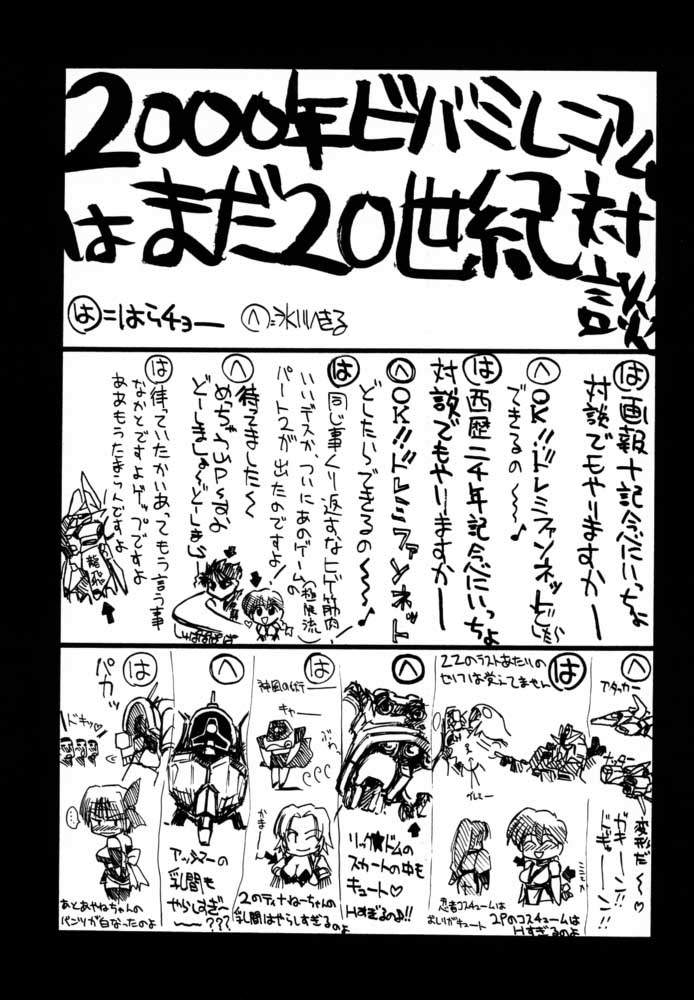 2000年ビバミレニアム
はまだ20世紀対談
は=はらチョー
へ=氷川へきる
は 画報十記念にいっちょ
対談でもやりますかー
へ OK!!ドレミファンネットどしたら
できるの〜〜♪
は 西歴二千年記念にいっちょ
対談でもやりますかー
へ OK!!ドレミファンネット
どしたらできるの〜〜〜♪
は 同じ事くり返すなヒゲ筋肉
(極限流)
いいデスか、ついにあのゲームの
パート2が出たのですよ!
へ 待ってました〜
めっちゃUPっすよ
どーしましょ〜どーしましょ
しゅばばばば
は 待っていたかいあってもう言う事
なかとですよゲップですよ
ああもうたまらんですよ
龍飛
へ
アタッカー
ナッター
変形だ〜♡
ガキーン!!
ドギューーン!!
は
ZZのラストあたりの
セリフは覚えてません
忍者コスチュームは
おしりがキュート
2Pのコスチュームは
Hすぎるのよ
へ
リック★ドムの
スカートの中も
キュート♡
Hすぎるのよ!!
は
神風の術ー
キャー
ぶわっ
かまーん
2のティナねーちゃんの
乳間はやらしすぎる
のよ
へ
アッシマーの
乳間も
やらしすぎ〜
〜〜???
は
パカッ
ドキッ♡
…
あとあやねちゃんの
パンツが白なったのよ